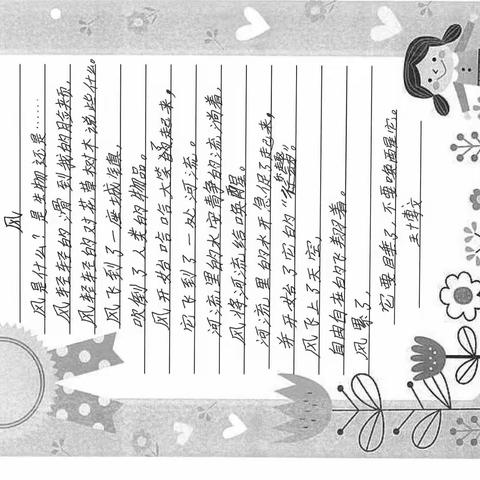 风
风是什么？是生物还是……
风轻轻的滑到我的脸颊，
风轻轻的对花草树木说些什么。
风飞到了一座城堡，
吹倒了人类的物品。
风开始哈哈大笑了起来，
它飞到了一处河流。
河流里的水安静的流淌着，
风将河流给唤醒。
河流里的水开急促了起来，
并开始了它的“任务”
风飞上了天空，
自由自在的飞翔着。
风累了，
它要睡了，不要唤醒它。
王博